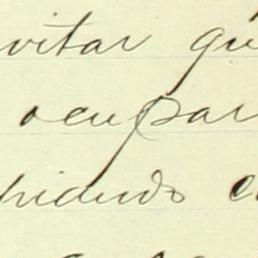 vitar qu
ocupar
pidiendo c